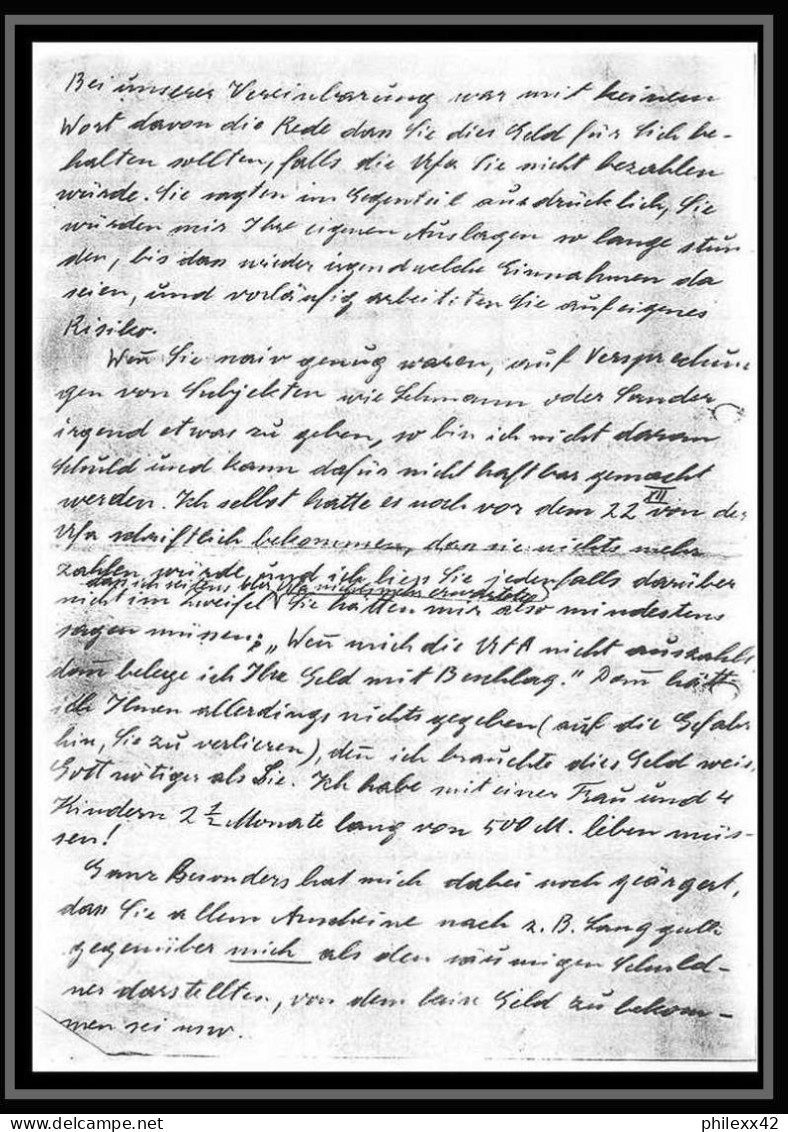 Bei unserer Vereinbarung war mit keinem
Wort davon die Rede das Sie dies Geld für Sich be-
halten sollten, falls die Ufa Sie nicht bezahlen
würde. Sie sagten im Gegenteil ausdrücklich, Sie
würden mir Ihre eigenen Auslagen so lange stun
den, bis das wieder irgendwelche Einnahmen da
seien, und vorläufig arbeiteten Sie auf eigenes
Risiko.
Weñ Sie naiv genug waren, auf Versprechun
gen von Subjekten wie Lehmann oder Sander
irgend etwas zu geben, so bin ich nicht daran
Schuld und kann dafür nicht haftbar gemacht
werden. Ich selbst hatte es noch vor dem 22 XII von der
Ufa schriftlich bekommen, das sie nichts mehr
zahlen würde und ich liess Sie jedenfalls darüber
dass ich seitens der Ufa nichts mehr erwartete
nicht im Zweifel Sie hätten mir also mindestens
sagen müssen: „Weñ mich die Ufa nicht auszahlt
dañ belege ich Ihr Geld mit Beschlag." Dañ hätte
ich Ihnen allerdings nichts gegeben (auf die Gefahr
hin, Sie zu verlieren), deñ ich brauchte dies Geld weis
Gott nötiger als Sie. Ich habe mit einer Frau und 4
Kindern 2 1/2 Monate lang von 500 M. leben müs-
sen!
Ganz Besonders hat mich dabei noch geärgert,
das Sie allem Anscheine nach z. B. Langgutt
gegenüber mich als den säumigen Schuld-
ner darstellten, von dem kein Geld zu bekom-
men sei usw.
delcampe.net
philexx42